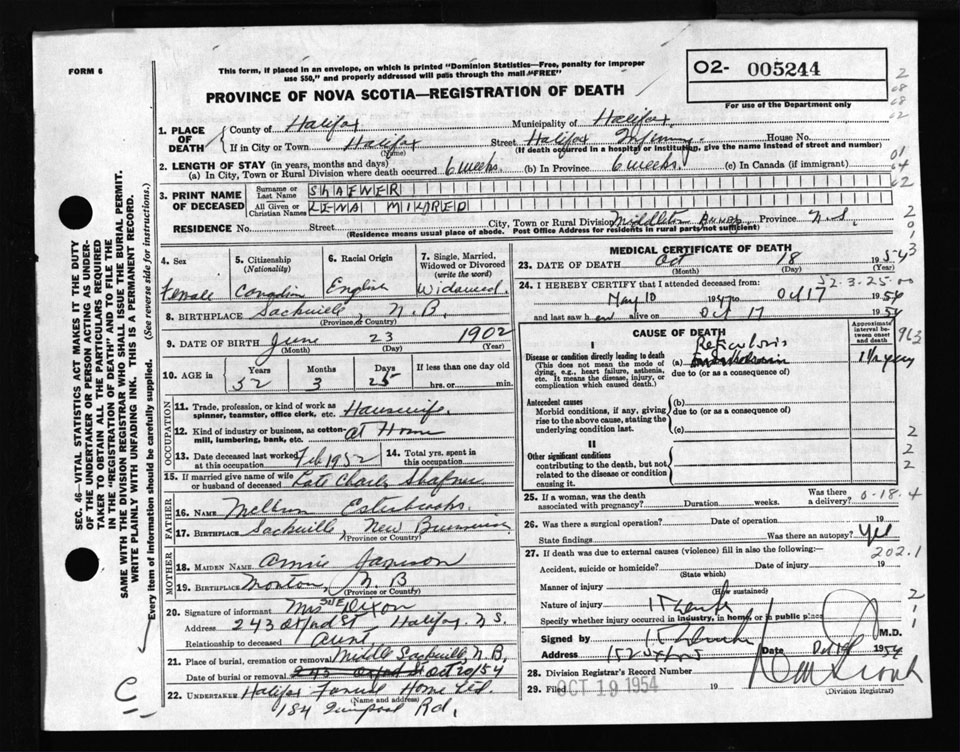 FORM 6
This form, if placed in an envelope, on which is printed "Dominion Statistics—Free, penalty for improper
use $50," and properly addressed will pass through the mail "FREE"
PROVINCE OF NOVA SCOTIA—REGISTRATION OF DEATH
O2- 005244
For use of the Department only
1. PLACE OF DEATH
County of Halifax Municipality of Halifax
If in City or Town Halifax (Name) Street Halifax Infirmary. House No.
(If death occurred in a hospital or institution, give the name instead of street and number)
2. LENGTH OF STAY (in years, months and days)
(a) In City, Town or Rural Division where death occurred 6 weeks. (b) In Province 6 weeks. (c) In Canada (if immigrant)
3. PRINT NAME OF DECEASED
Surname or Last Name SHAFNER
All Given or Christian Names LENA MILDRED
RESIDENCE No. Street City, Town or Rural Division Middleton Province N.S.
(Residence means usual place of abode. Post Office Address for residents in rural parts not sufficient)
4. Sex Female
5. Citizenship (Nationality) Canadian
6. Racial Origin English
7. Single, Married, Widowed or Divorced (write the word) Widowed
8. BIRTHPLACE Sackville, N.B.
(Province or Country)
9. DATE OF BIRTH June 23 1902
(Month) (Day) (Year)
10. AGE in Years 52 Months 3 Days 25 If less than one day hrs. or min.
OCCUPATION
11. Trade, profession, or kind of work as spinner, teamster, office clerk, etc. Housewife.
12. Kind of industry or business, as cotton-mill, lumbering, bank, etc. at Home
13. Date deceased last worked at this occupation Feb 1952
14. Total yrs. spent in this occupation
15. If married give name of wife or husband of deceased Late Charles Shafner
FATHER
16. NAME Melburn Esterbrooks
17. BIRTHPLACE Sackville, New Brunswick
(Province or Country)
MOTHER
18. MAIDEN NAME Annie
19. BIRTHPLACE N.B
(Province or Country)
20. Signature of informant Mrs Dixon
Address 243 Oxford St Halifax. N.S.
Relationship to deceased Aunt
21. Place of burial, cremation or removal Middle Sackville N.B.
Date of burial or removal 243 Oxford St Oct 20/54
22. UNDERTAKER Halifax Funeral Home Ltd.
(Name and address)
184 Quinpool Rd.
MEDICAL CERTIFICATE OF DEATH
23. DATE OF DEATH Oct 18 1954
(Month) (Day) (Year)
24. I HEREBY CERTIFY that I attended deceased from:
May 10 to Oct 17 1954
and last saw her alive on Oct 17 1954
CAUSE OF DEATH
Approximate interval between onset and death
I
Disease or condition directly leading to death
(This does not mean the mode of dying, e.g., heart failure, asthenia, etc. It means the disease, injury, or complication which caused death.)
(a) Reticulosis
due to (or as a consequence of)
Antecedent causes
Morbid conditions, if any, giving rise to the above cause, stating the underlying condition last.
(b)
due to (or as a consequence of)
(c)
II
Other significant conditions
contributing to the death, but not related to the disease or condition causing it.
25. If a woman, was the death associated with pregnancy? Duration weeks. Was there a delivery?
26. Was there a surgical operation? Date of operation 19
State findings Was there an autopsy? Yes
27. If death was due to external causes (violence) fill in also the following:—
202.1
Accident, suicide or homicide? Date of injury 19
(State which)
Manner of injury
(How sustained)
Nature of injury
Specify whether injury occurred in industry, in home, or in public place
Signed by M.D.
Address 152 Oxford Date Oct 1954
28. Division Registrar's Record Number
29. Filed OCT 19 1954 19
(Division Registrar)
SEC. 46—VITAL STATISTICS ACT MAKES IT THE DUTY
OF THE UNDERTAKER OR PERSON ACTING AS UNDER-
TAKER TO OBTAIN ALL THE PARTICULARS REQUIRED
IN THE "REGISTRATION OF DEATH" AND TO FILE THE
SAME WITH THE DIVISION REGISTRAR WHO SHALL ISSUE THE BURIAL PERMIT.
WRITE PLAINLY WITH UNFADING INK. THIS IS A PERMANENT RECORD.
Every item of information should be carefully supplied. (See reverse side for instructions.)
C